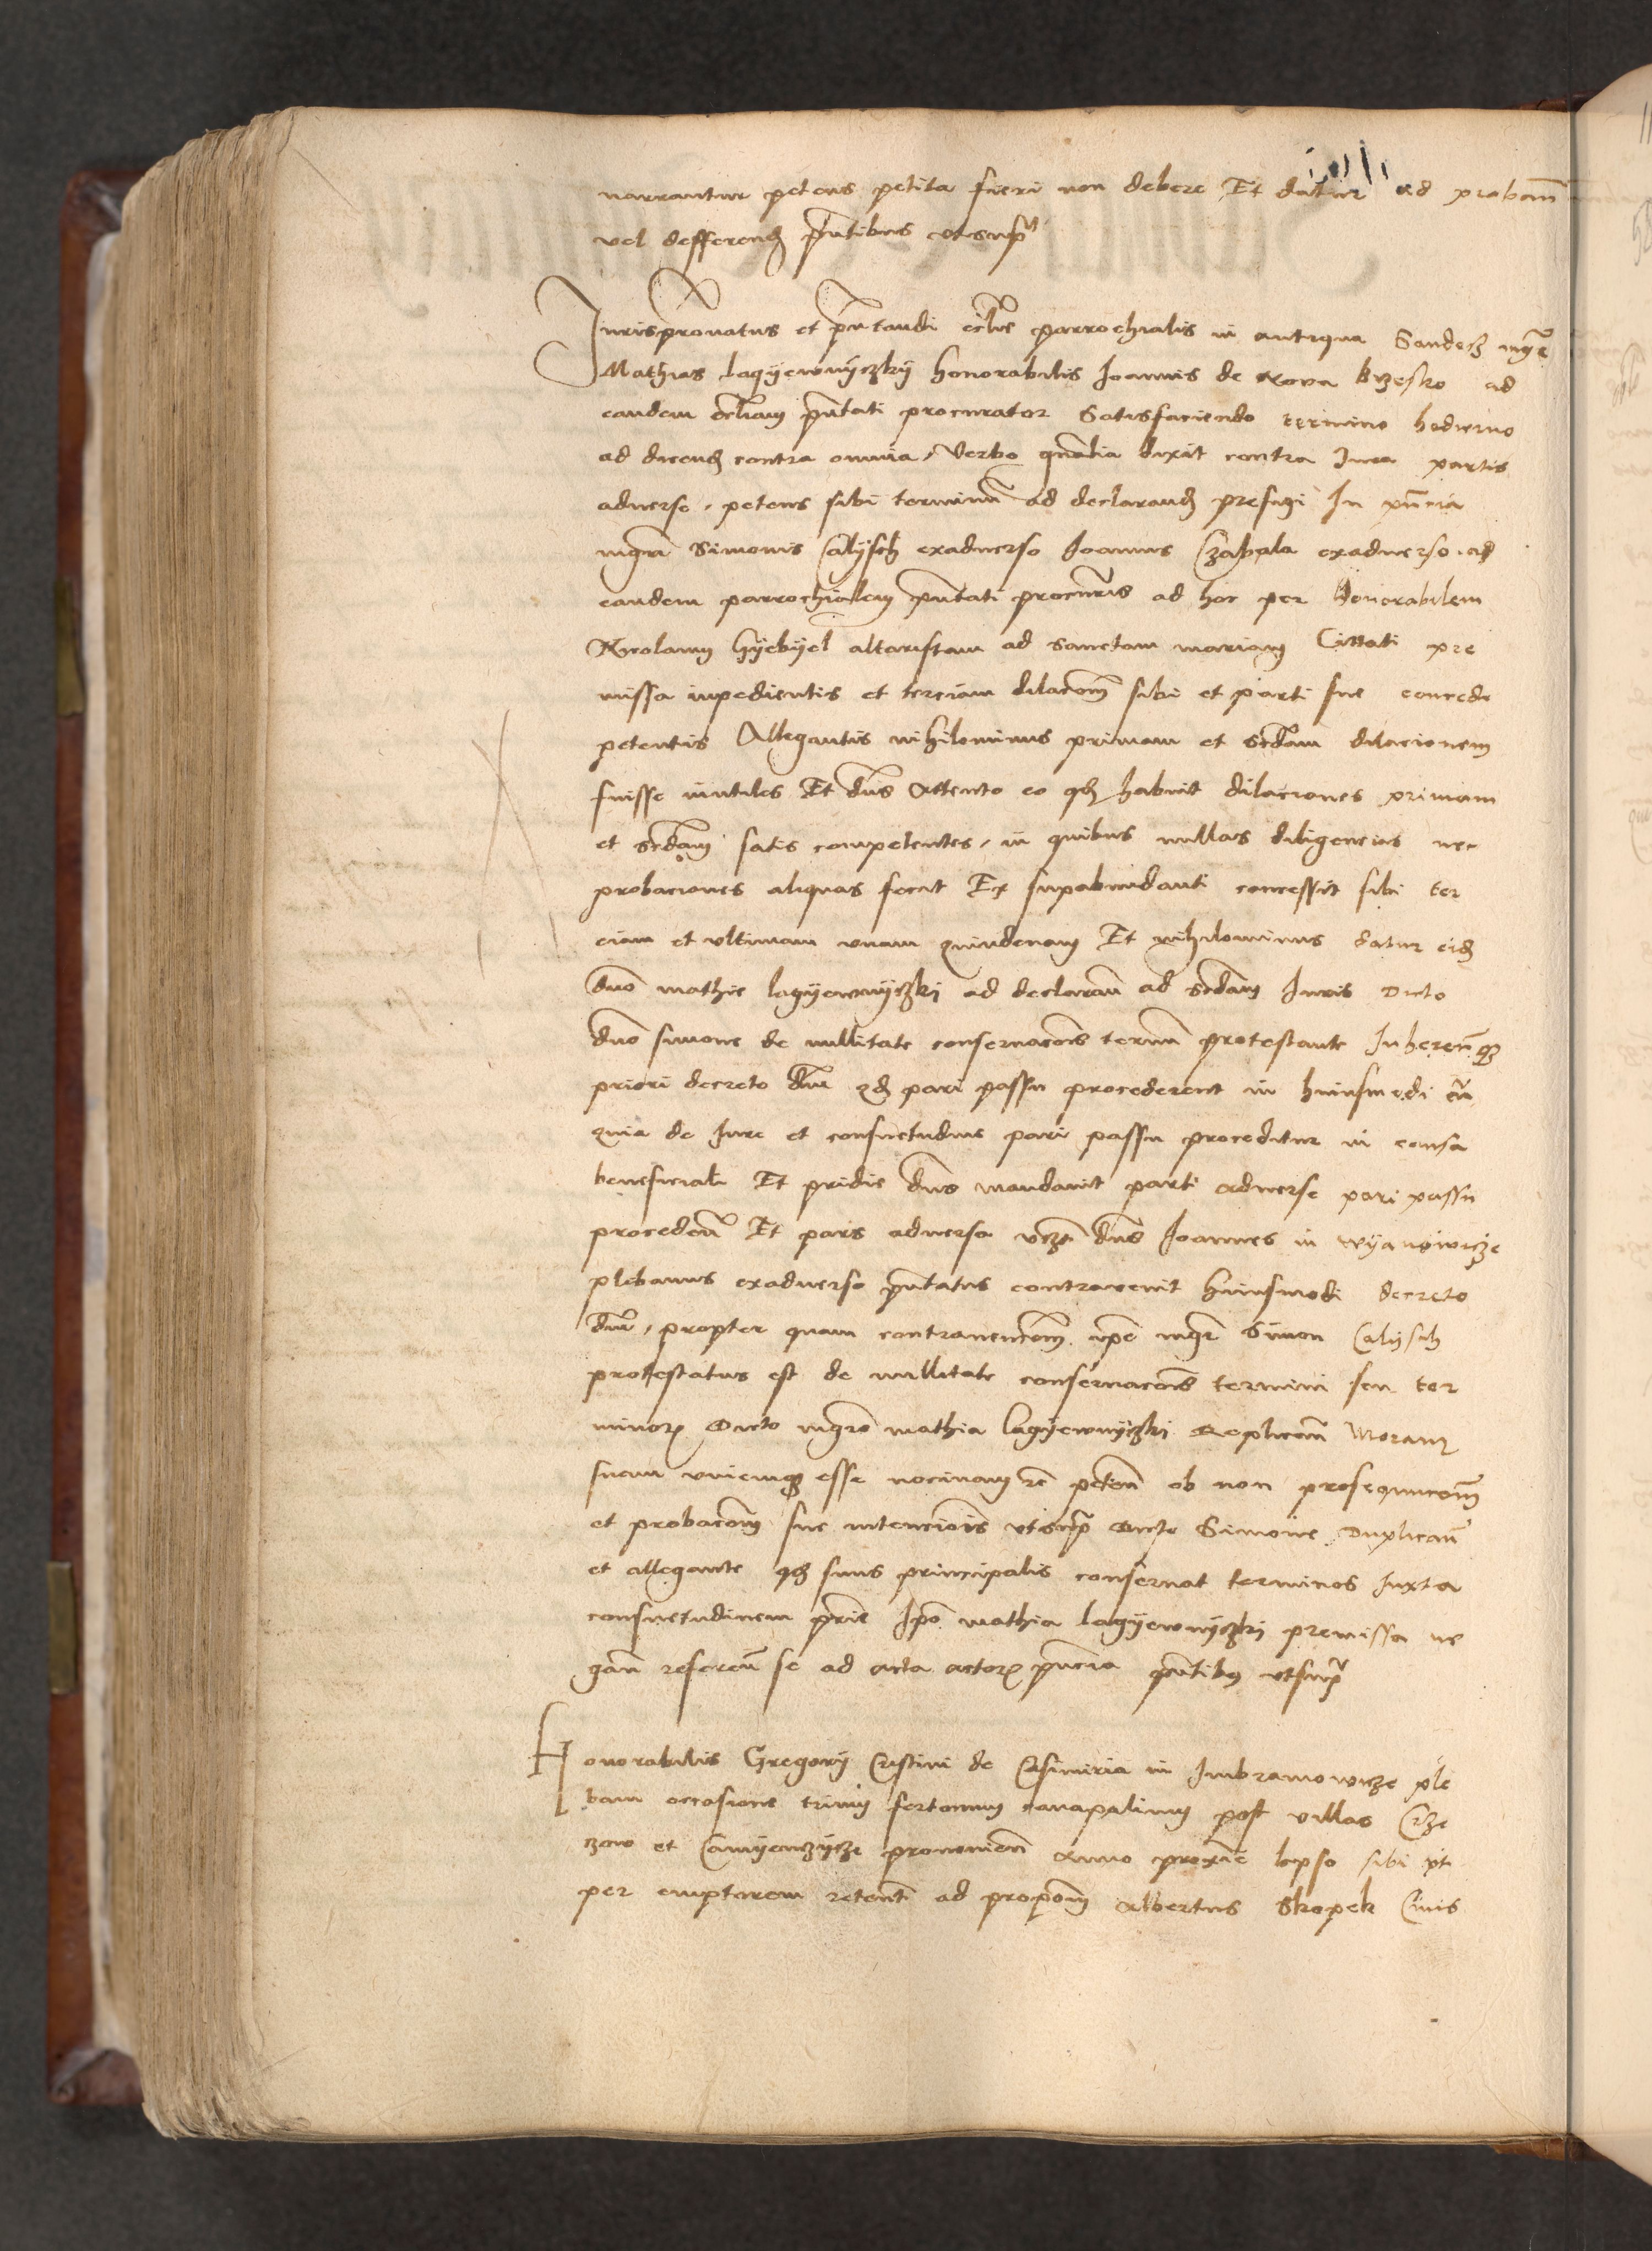 narrantur petens petita fieri non debere Et datur ad proband
vel defferend pntibus vtsupra
Jurispronatus et pntandi ecclie parrochialis in antiqua Sandecz mgr
Mathias lagyewnyczky honorabilis Joannis de Nova Brzesko ad
eandem eccliam pntati procurator Satisfaciendo termino hodierno
ad dicend contra omnia, Verbo gnalia dixit contra Jura partis
aduerse, petens sibi terminu ad declarand prefigi In pncia
mgri Simonis Calysch exaduerso Joannis Czabala exaduerso ad
eandem parrochialem pntati procuris ad hoc per honorabilem
Nicolaum Gyebyel altaristam ad sanctam mariam Cittati pre
missa inpedientis et terciam dilacom sibi et parti sue concedi
petentis Allegantis nihilominus primam et scdam dilacionem
fuisse inutiles Et dns Attento eo qd habuit dilaciones primam
et scdam satis competentes, in quibus nullas diligencias nec
probaciones aliquas fecit Ex supabundanti concessit sibi ter
ciam et vltimam vnam quindenam Et nihilominus datur eid
dno mathie lagyewnyczki ad declaran ad scdam Juris Dicto
dno simone de nullitate conseruacois termi protestante Inheren qz
priori decreto dni qd pari passu procederent in huiusmodi ca
quia de Jure et consuetudine pari passu proceditur in causa
beneficiali Et pridie dns mandauit parti aduerse pari passu
proceden Et pars aduersa vczt dns Joannes in wyanowicze
plebanus exaduerso pntatus contrauenit huiusmodi decreto
dni, propter quam contrauencom ipe mgr Simon Calysch
protestatus est de nullitate conseruacois termini seu ter
minorz Dicto mgro mathia lagyewnyczki Replican Moram
suam vnicuiqz esse nociuam et peten ob non prosequucom
et probacom sue intencionis vtsupra Dicto Simone Duplican
et allegante qd suus principalis conseruat terminos Juxta
consuetudinem prie Ipo mathia lagyewnyczki premissa ne
gan referen se ad acta actorz pncia pntibus vtsupra
Honorabilis Gregorij Cristini de Casimiria in Imbramowicze ple
bani occasione trium fertonum canapalium post villas Crze
czow et Camyenczycze prouenien Anno proxie lapso sibi
per emptorem retent ad propom Albertus Skopek Ciuis